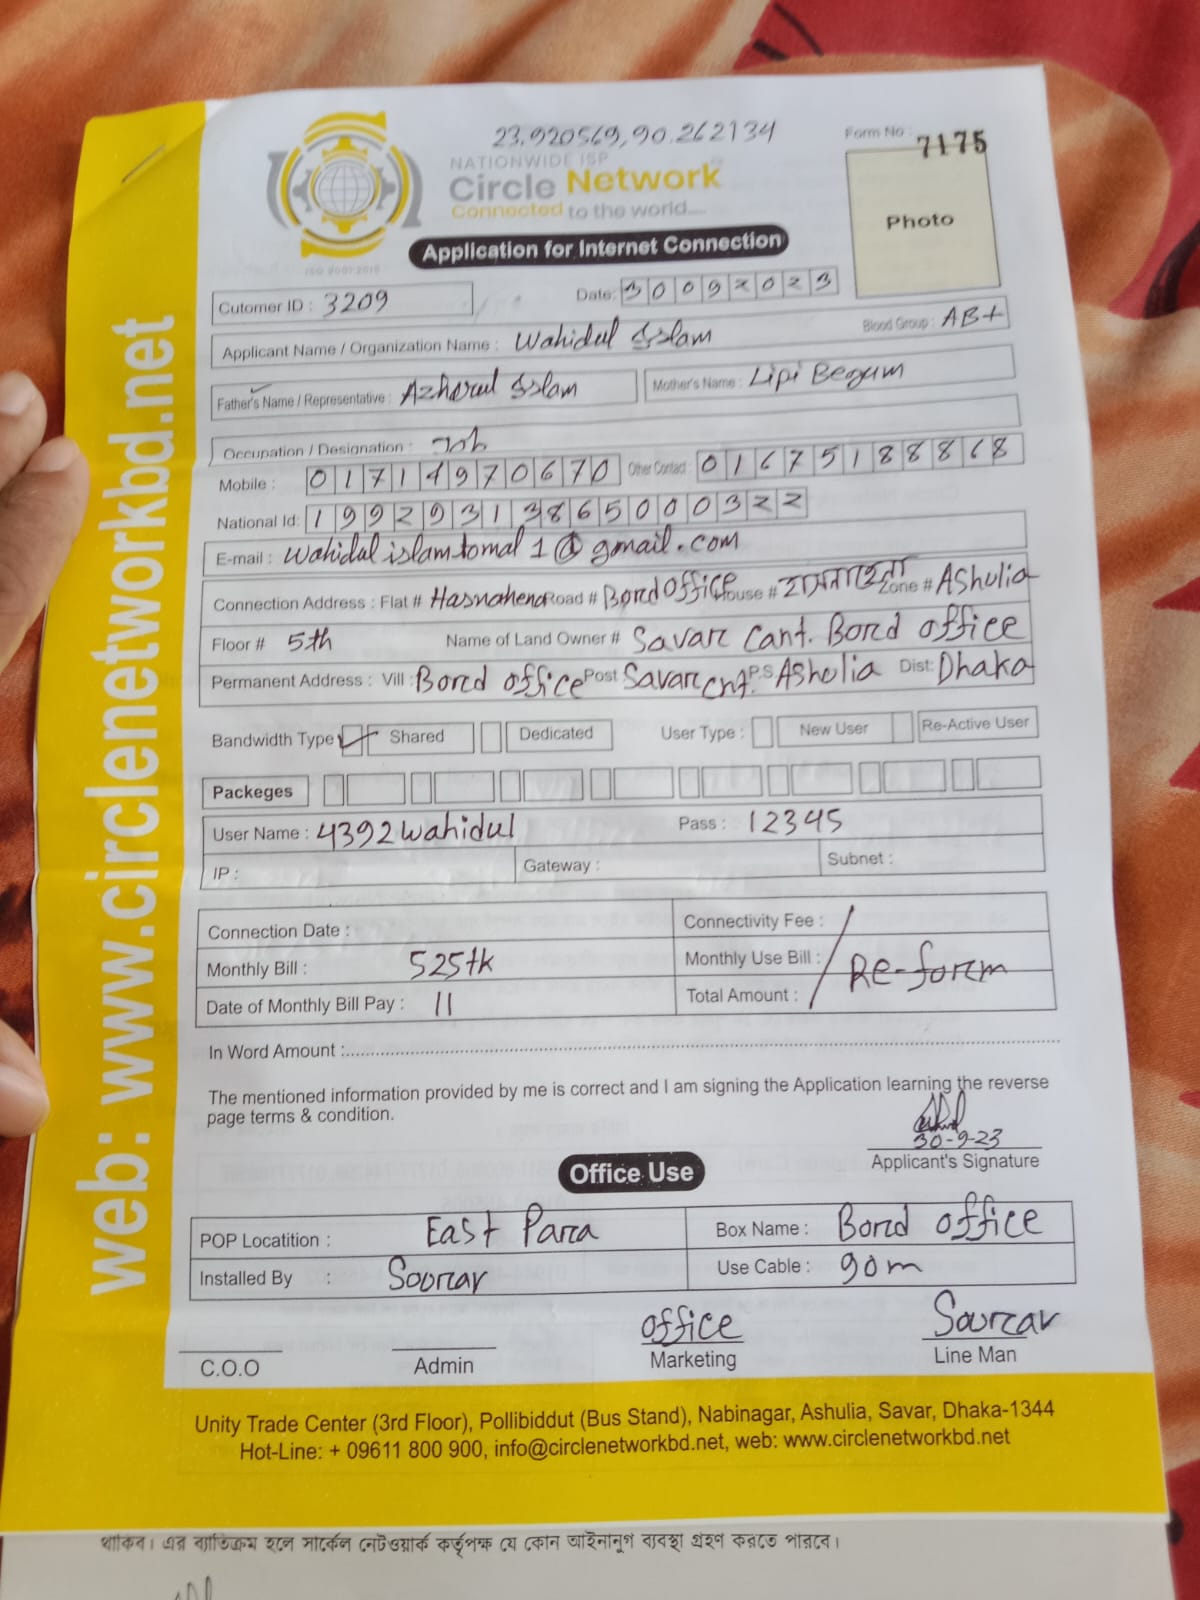 23.920569, 90.262134
Form No : 7175
NATIONWIDE ISP
Circle Network
Connected to the world....
Photo
ISO 9001:2015
Application for Internet Connection
Cutomer ID : 3209
Date: 30092023
Applicant Name / Organization Name : Wahidul Islam
Blood Group : AB+
Father's Name / Representative : Azharul Islam
Mother's Name : Lipi Begum
Occupation / Designation : Job
Mobile : 01714970670 Other Contact : 01675188868
National Id: 19929313865000322
E-mail : wahidulislamtomal1@gmail.com
Connection Address : Flat # Hasnahena Road # Bord office House # হাসনাহেনা Zone # Ashulia
Floor # 5th Name of Land Owner # Savar Cant. Bord office
Permanent Address : Vill : Bord office Post Savar Cnt. P.S Asholia Dist: Dhaka
Bandwidth Type Shared Dedicated User Type : New User Re-Active User
Packeges
User Name : 4392wahidul Pass : 12345
IP : Gateway : Subnet :
Connection Date : Connectivity Fee :
Monthly Bill : 525tk Monthly Use Bill : Re-form
Date of Monthly Bill Pay : 11 Total Amount :
In Word Amount :
The mentioned information provided by me is correct and I am signing the Application learning the reverse
page terms & condition.
30-9-23
Applicant's Signature
Office Use
POP Locatition : East Para Box Name : Bord office
Installed By : Sourav Use Cable : 90m
office Sourav
C.O.O Admin Marketing Line Man
Unity Trade Center (3rd Floor), Pollibiddut (Bus Stand), Nabinagar, Ashulia, Savar, Dhaka-1344
Hot-Line: + 09611 800 900, info@circlenetworkbd.net, web: www.circlenetworkbd.net
web: www.circlenetworkbd.net
থাকিব। এর ব্যতিক্রম হলে সার্কেল নেটওয়ার্ক কর্তৃপক্ষ যে কোন আইনানুগ ব্যবস্থা গ্রহণ করতে পারবে।